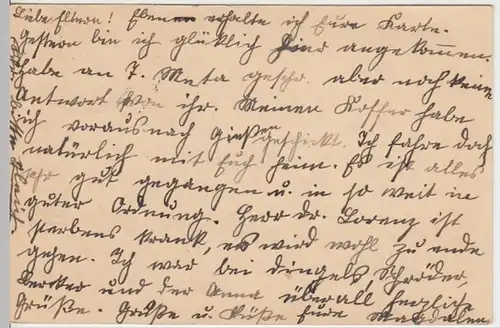 Liebe Eltern! Eben erhalte ich Eure Karte.
Gestern bin ich glücklich hier angekommen.
Habe an T. Meta geschr. aber noch keine
Antwort von ihr. Meinen Koffer habe
ich voraus nach Gießen geschickt. Ich fahre doch
natürlich mit Euch heim. Es ist alles
sehr gut gegangen u. in so weit in
guter Ordnung. Herr Dr. Lorenz ist
sterbens krank, es wird wohl zu ende
gehen. Ich war bei Dingels, Schröder,
Becker und der Anna überall herzlich
Grüße. Grüße u. Küße Eure Magdalen